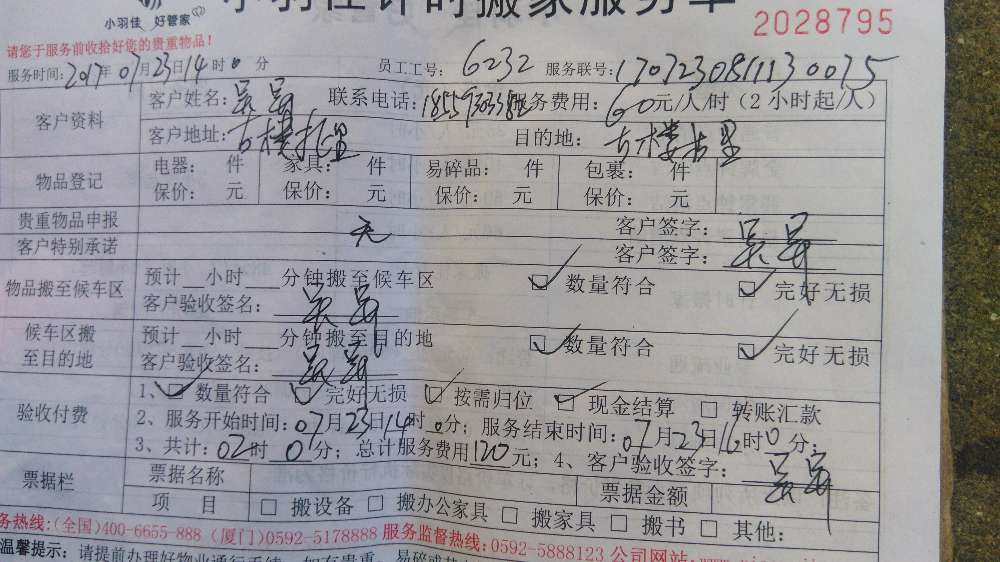 小羽佳计时搬家服务单
小羽佳 好管家
2028795
请您于服务前收拾好您的贵重物品!
服务时间:2017年07月23日14时0分 员工工号: 6232 服务联号:170723081113 0075
客户资料 客户姓名: 联系电话: 服务费用: 60元/人/时(2小时起/人)
客户地址: 目的地:
物品登记 电器: 件 家具: 件 易碎品: 件 包裹: 件
保价: 元 保价: 元 保价: 元 保价: 元
贵重物品申报 无 客户签字:
客户特别承诺 客户签字:
物品搬至候车区 预计__小时___分钟搬至候车区 数量符合 完好无损
客户验收签名:
候车区搬至目的地 预计__小时___分钟搬至目的地 数量符合 完好无损
客户验收签名:
验收付费 1、 数量符合 完好无损 按需归位 现金结算 转账汇款
2、服务开始时间:07月23日14时0分;服务结束时间:07月23日16时0分;
3、共计:02时0分;总计服务费用120元;4、客户验收签字:
票据栏 票据名称 票据金额
项 目 搬设备 搬办公家具 搬家具 搬书 其他:
务热线:(全国)400-6655-888 (厦门)0592-5178888 服务监督热线:0592-5888123 公司网站:
温馨提示:请提前办理好物业通行手续